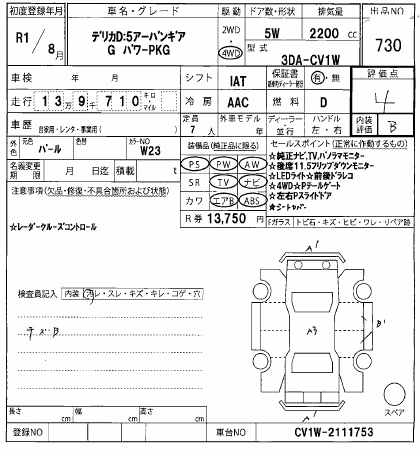 初度登録年月 車名・グレード 駆動 ドア数・形状 排気量 出品NO
R1/8月 デリカD:5アーバンギア G パワーPKG 2WD・4WD 5W 2200 cc 730
型式 3DA-CV1W
車検 年 月 シフト IAT 保証書 有・無 評価点 4
走行 13万9千710 キロ・マイル 冷房 AAC 燃料 D 内装評価 B
車歴 自家用・レンタ・事業用( ) 定員 7人 外車モデル 年 ディーラー・並行 ハンドル 左・右
外色 元色 パール 色替 カラーNO W23
装備品(純正品に限る) セールスポイント(正常に作動するもの)
名義変更期限 月 日迄 積載 t
PS PW AW
SR TV ナビ
カワ エアB ABS
R券 13,750 円
☆純正ナビ,TV,パノラマモニター
☆後席11.5フリップダウンモニター
☆LEDライト☆前後ドラレコ
☆4WD☆Pテールゲート
☆左右Pスライドドア
☆シートカバー
注意事項(欠品・修復・不具合箇所および状態)
☆レーダークルーズコントロール
Fガラス トビ石・キズ・ヒビ・ワレ・リペア跡
検査員記入 内装 汚レ・スレ・キズ・キレ・コゲ・穴
A'
A3
B'
A'
スペア
長さ cm 幅 cm 高さ cm
登録NO 車台NO CV1W-2111753